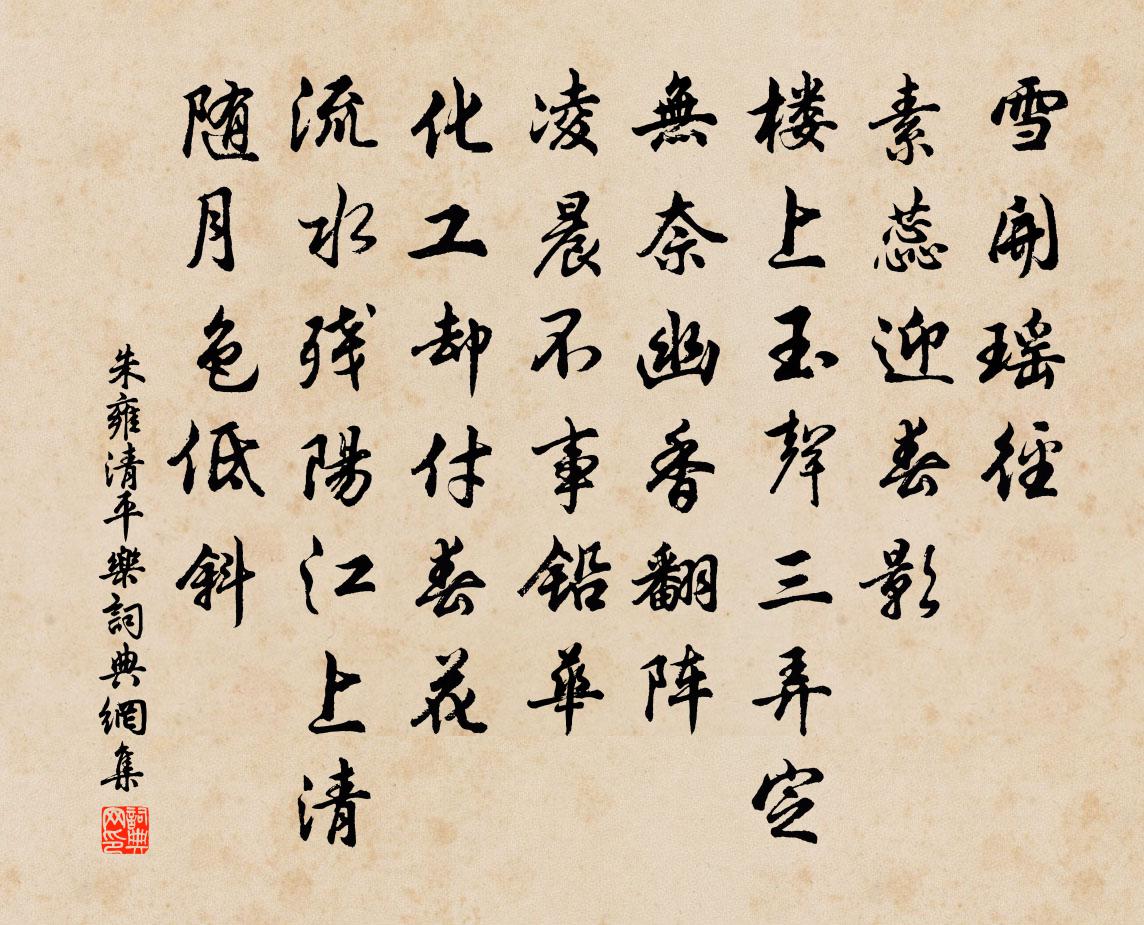 雪開瑶徑
素蕊迎春影
楼上玉聲三弄定
無奈幽香翻阵
凌晨不事鉛華
化工却付春花
流水残陽江上清
随月色低斜
朱雍清平樂詞典網集
詞典网印